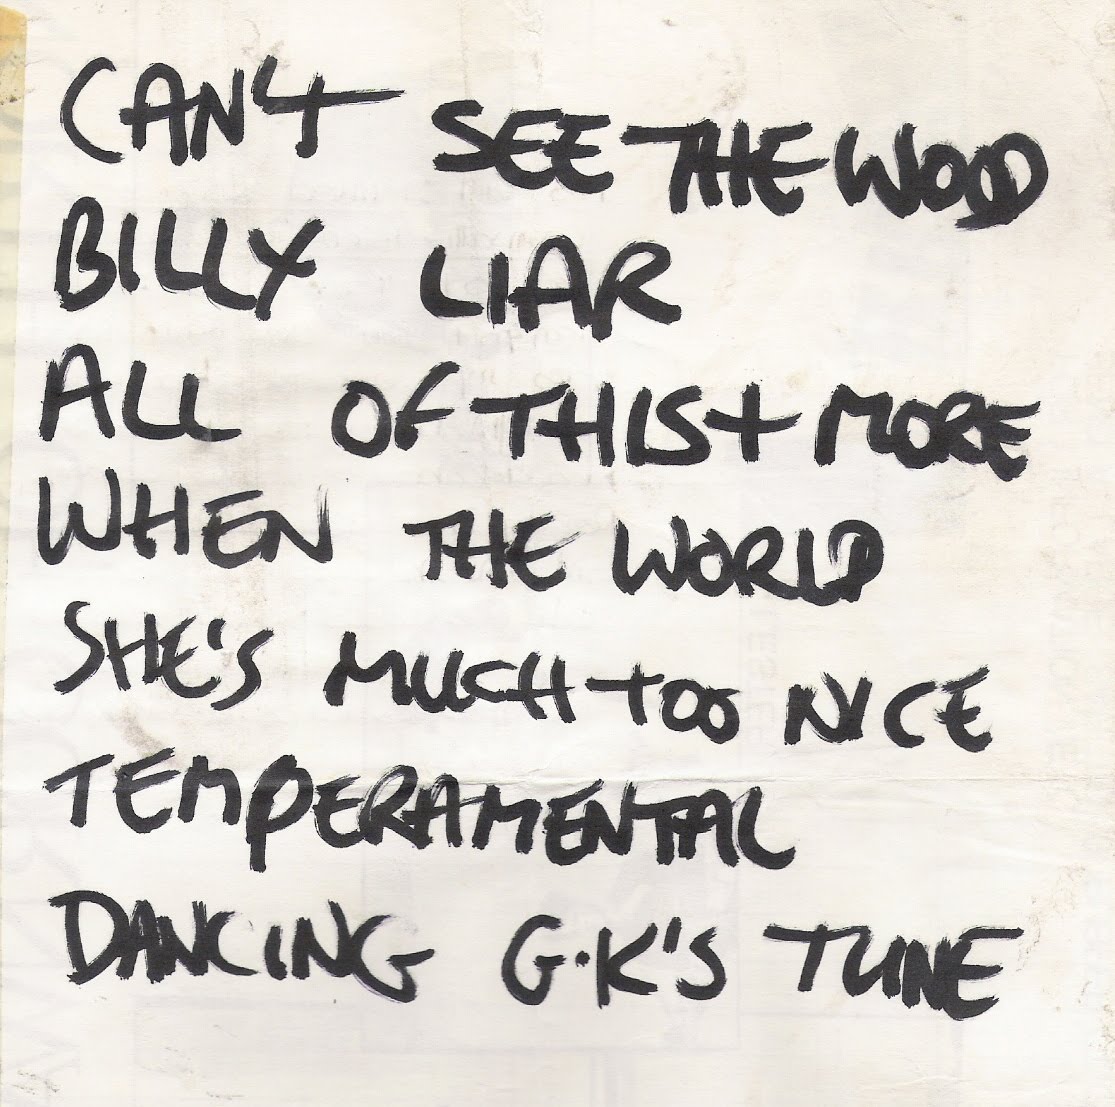 CAN'T SEE THE WOOD
BILLY LIAR
ALL OF THIS + MORE
WHEN THE WORLD
SHE'S MUCH TOO NICE
TEMPERAMENTAL
DANCING G.K'S TUNE